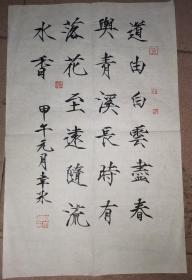 道由白雲盡春
與青溪長時有
落花至遠隨流
水香
甲午元月幸水